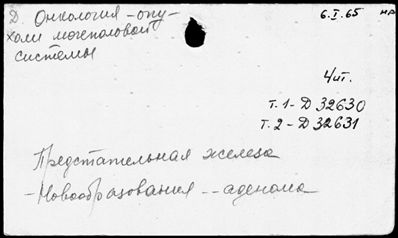 Д. Онкология - опу-
холи мочеполовой
системы
6.I.65
нр
Чит.
т. 1 - Д 32630
т. 2 - Д 32631
Предстательная железа
- Новообразования -- аденома